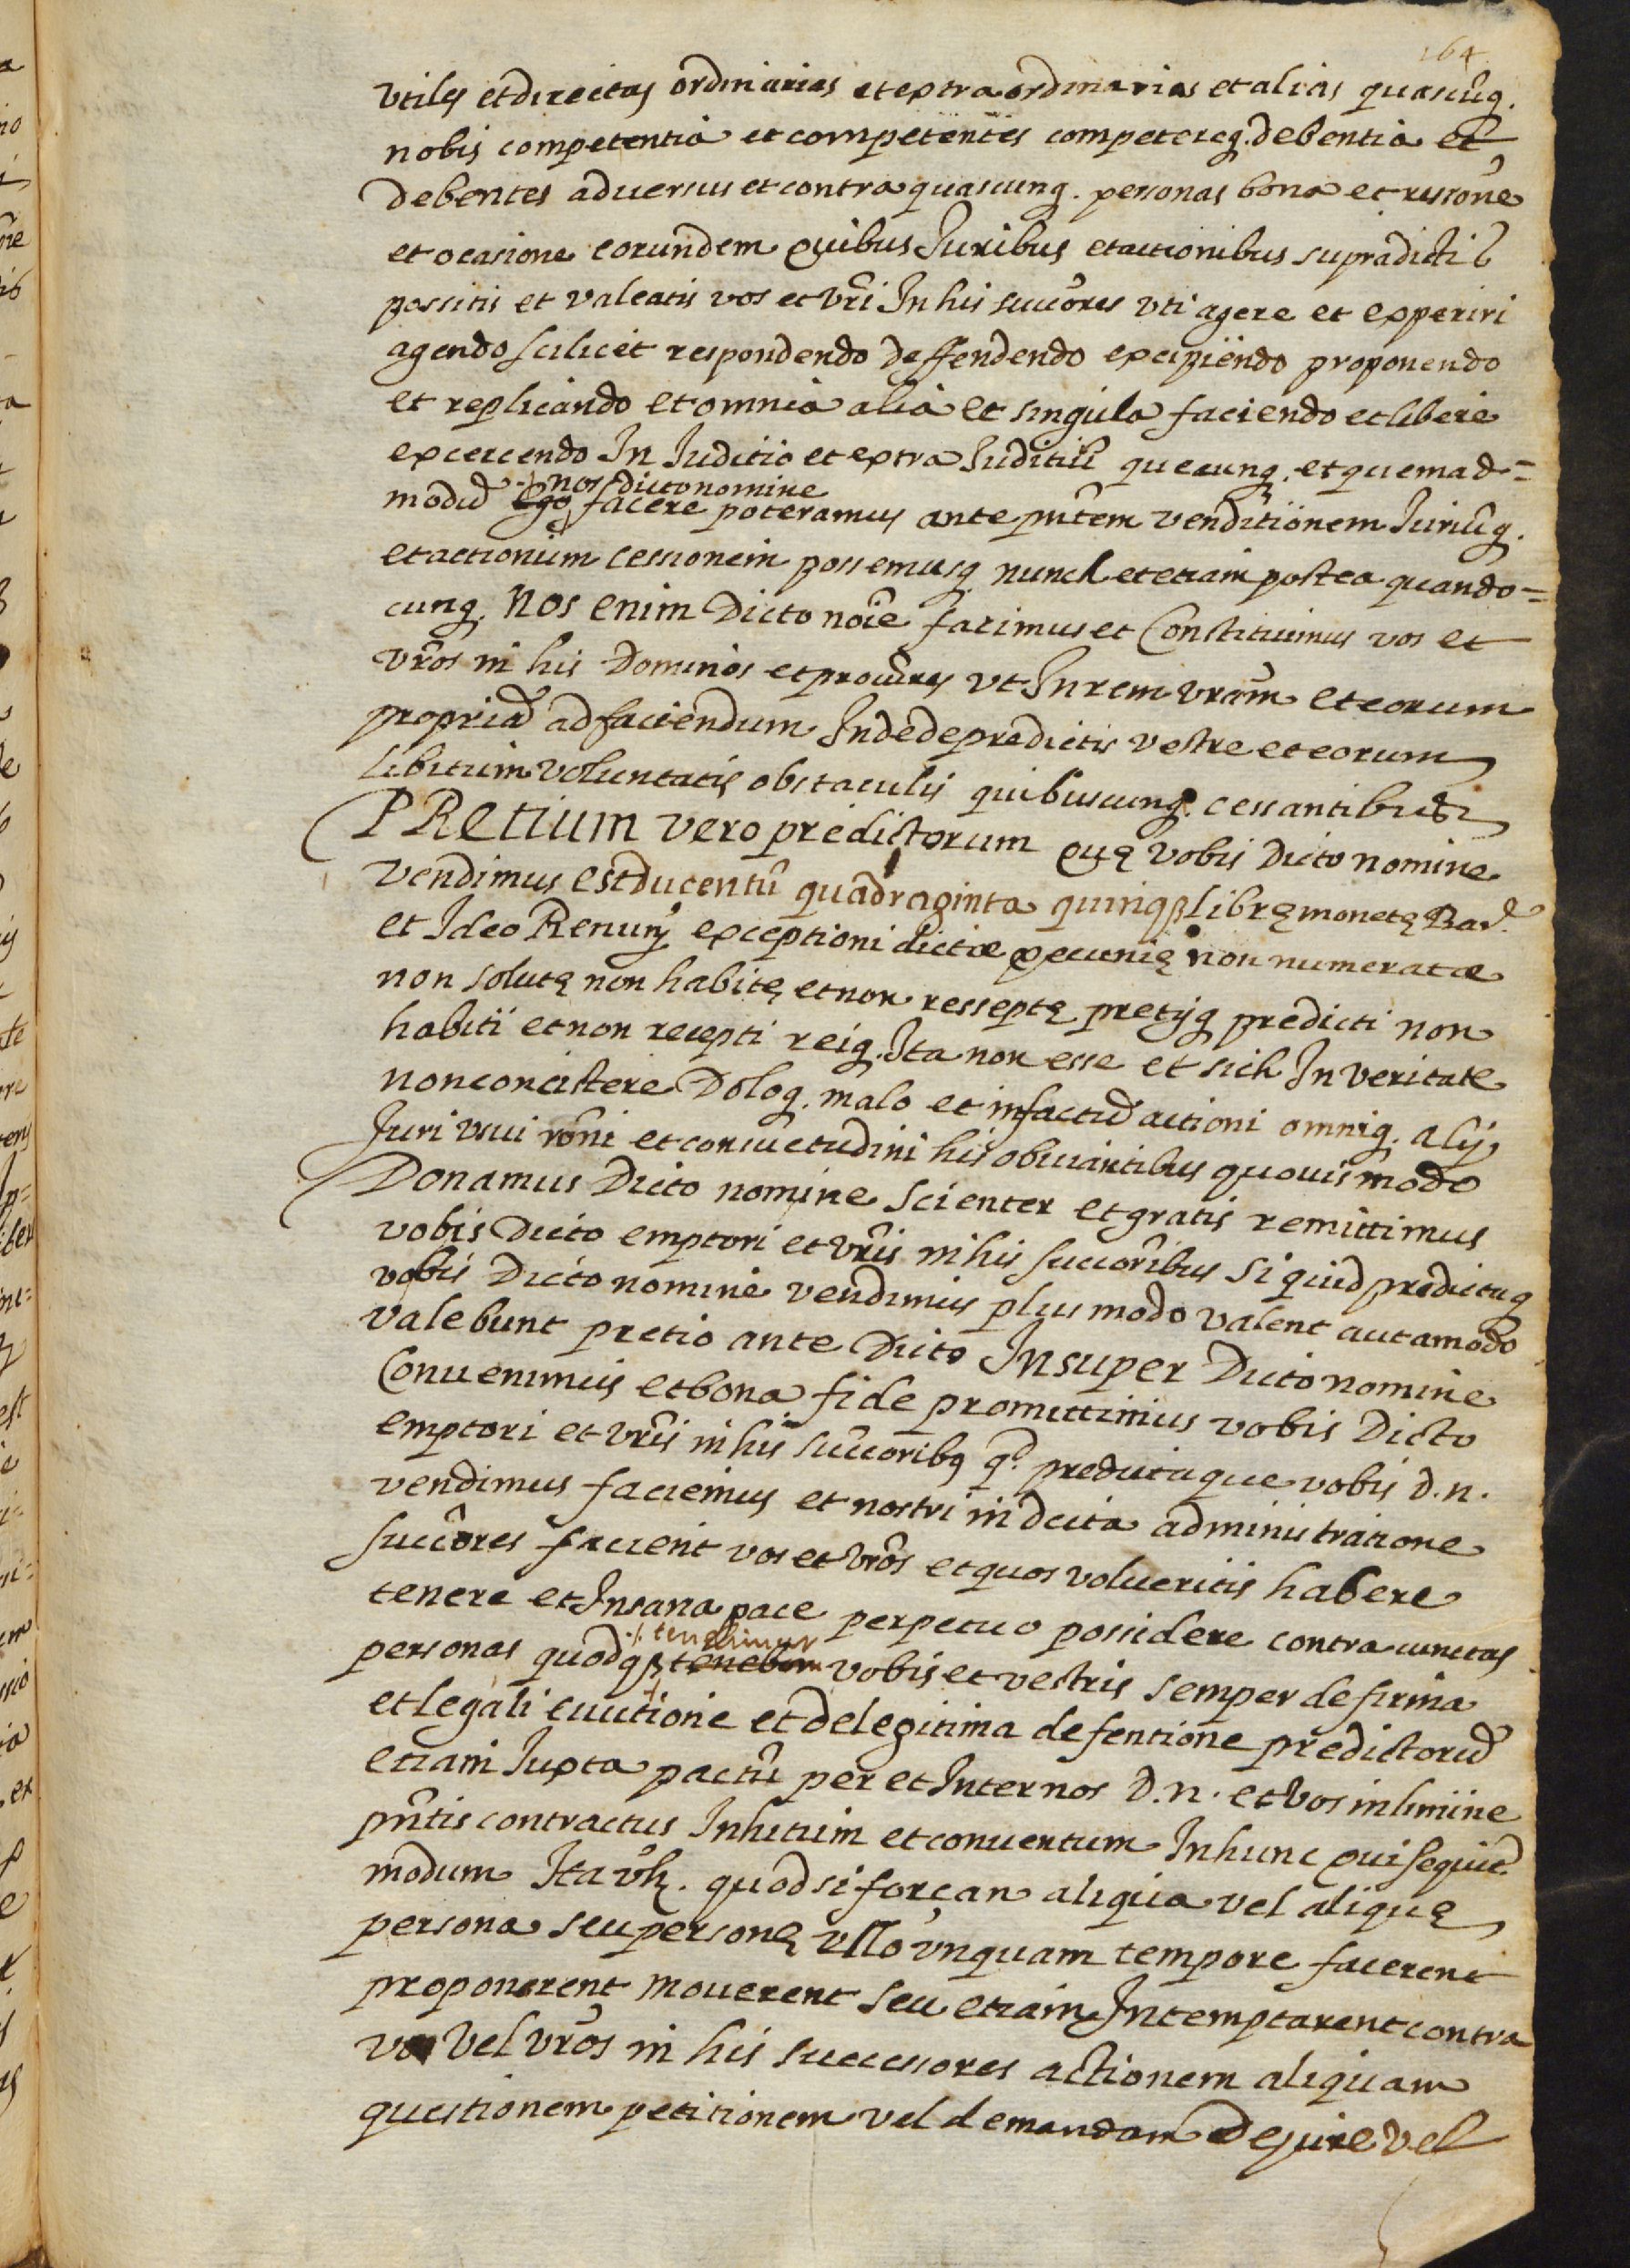 164
vtiles et directas ordinarias et extraordinarias et alias quascũq.
nobis competentia et competentes competereq. debentia et
debentes aduersus et contra quascunq. personas bona et res rõne
et ocasione eorundem quibus Juribus et actionibus supradictis
possitis et valeatis vos et vr̃i In his succõres vti agere et experiri
agendo scilicet respondendo deffendendo excipiendo proponendo
et replicando et omnia alia et singula faciendo et libere
excercendo In Juditio et extra Juditiũ quecunq. et quemad=
nos dicto nomine
modũ ego facere poteramus ante pñtem venditionem Juriũq.
et actionum cessionem possemusq. nunch et etiam postea quando=
cunq. Nos enim Dicto noĩe facimus et Constituimus vos et
vr̃os in his Dominos et procũres vt In rem vr̃am et eorum
propriã ad faciendum Inde de predictis vestre et eorum
libitum voluntatis obstaculis quibuscunq. cessantibus
PRetium vero predictorum quę vobis Dicto nomine
vendimus est ducentũ quadraginta quinq librę monetę Bar.ᵉ
et Ideo Renunˢ exceptioni dictæ pecunię non numeratæ
non solutę non habitę et non resseptę pretijq predicti non
habiti et non recepti reiq. Ita non esse et sich In veritate
non concistere Doloq. malo et in factũ actioni omniq. alij
Juri vsui rõni et consuetudini his obuiantibus quouis modo
Donamus Dicto nomine scienter et gratis remittimus
vobis Dicto emptori et vr̃is in his succõribus si quid predicta q
vobis Dicto nomine vendimus plus modo valent aut amodo
valebunt pretio ante Dicto Insuper Dicto nomine
Conuenimus et bona fide promittimus vobis Dicto
emptori et vr̃is in his succõribꝰ q.ᵈ predicta que vobis d.n.
vendimus faciemus et nostri in dicta administratione
succõres facient vos et vr̃os et quos volueritis habere
tenere et In sana pace perpetuo possidere contra cunctas
tenebimur
personas quodq tenebor vobis et vestris semper de firma
et legali euictione et de legitima defentione predictorũ
etiam Juxta pactũ per et Inter nos d.n. et vos in limine
pñtis contractus Inhitum et conuentum In hunc qui sequiᵗ
modum Ita vz. quod si forçan aliqua vel aliquę
persona seu personę vllo vnquam tempore facerent
proponerent mouerent seu etiam Intemptarent contra
vos vel vr̃os in his successores actionem aliquam
questionem petitionem vel demandam de jure vel